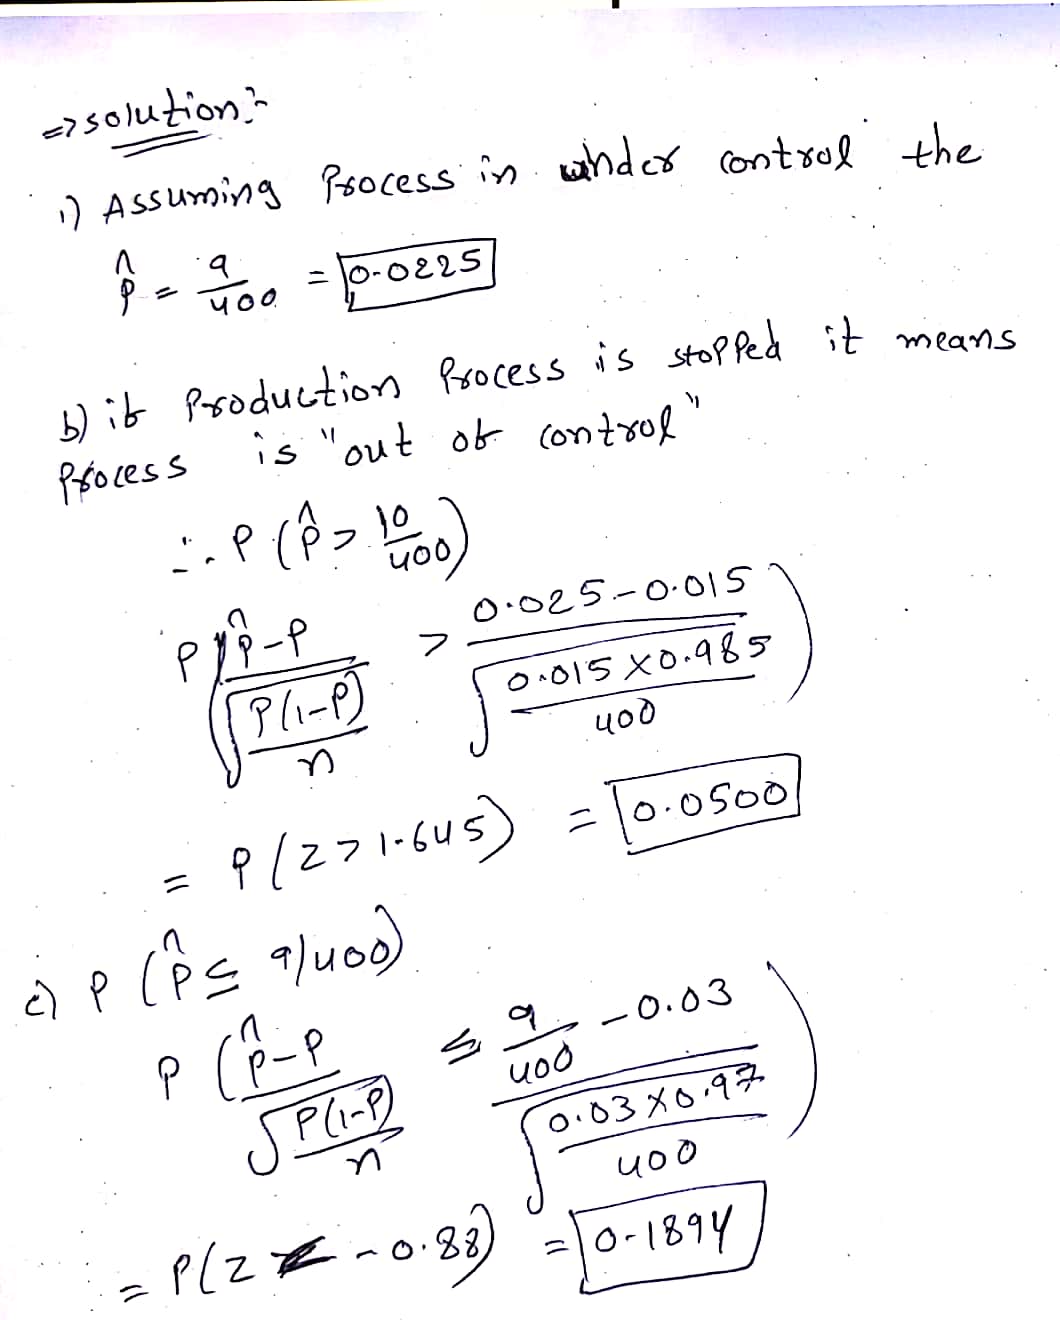 => solution:-
i) Assuming Process in under control the
p̂ = 9/400 = 0.0225
b) if Production Process is stopped it means
Process is "out of control"
∴ P(p̂ > 10/400)
P((p̂-P)/√(P(1-P)/n) > (0.025-0.015)/√(0.015×0.985/400))
= P(Z > 1.645) = 0.0500
c) P(p̂ ≤ 9/400)
P((p̂-P)/√(P(1-P)/n) ≤ (9/400 - 0.03)/√(0.03×0.97/400))
= P(Z < -0.88) = 0.1894